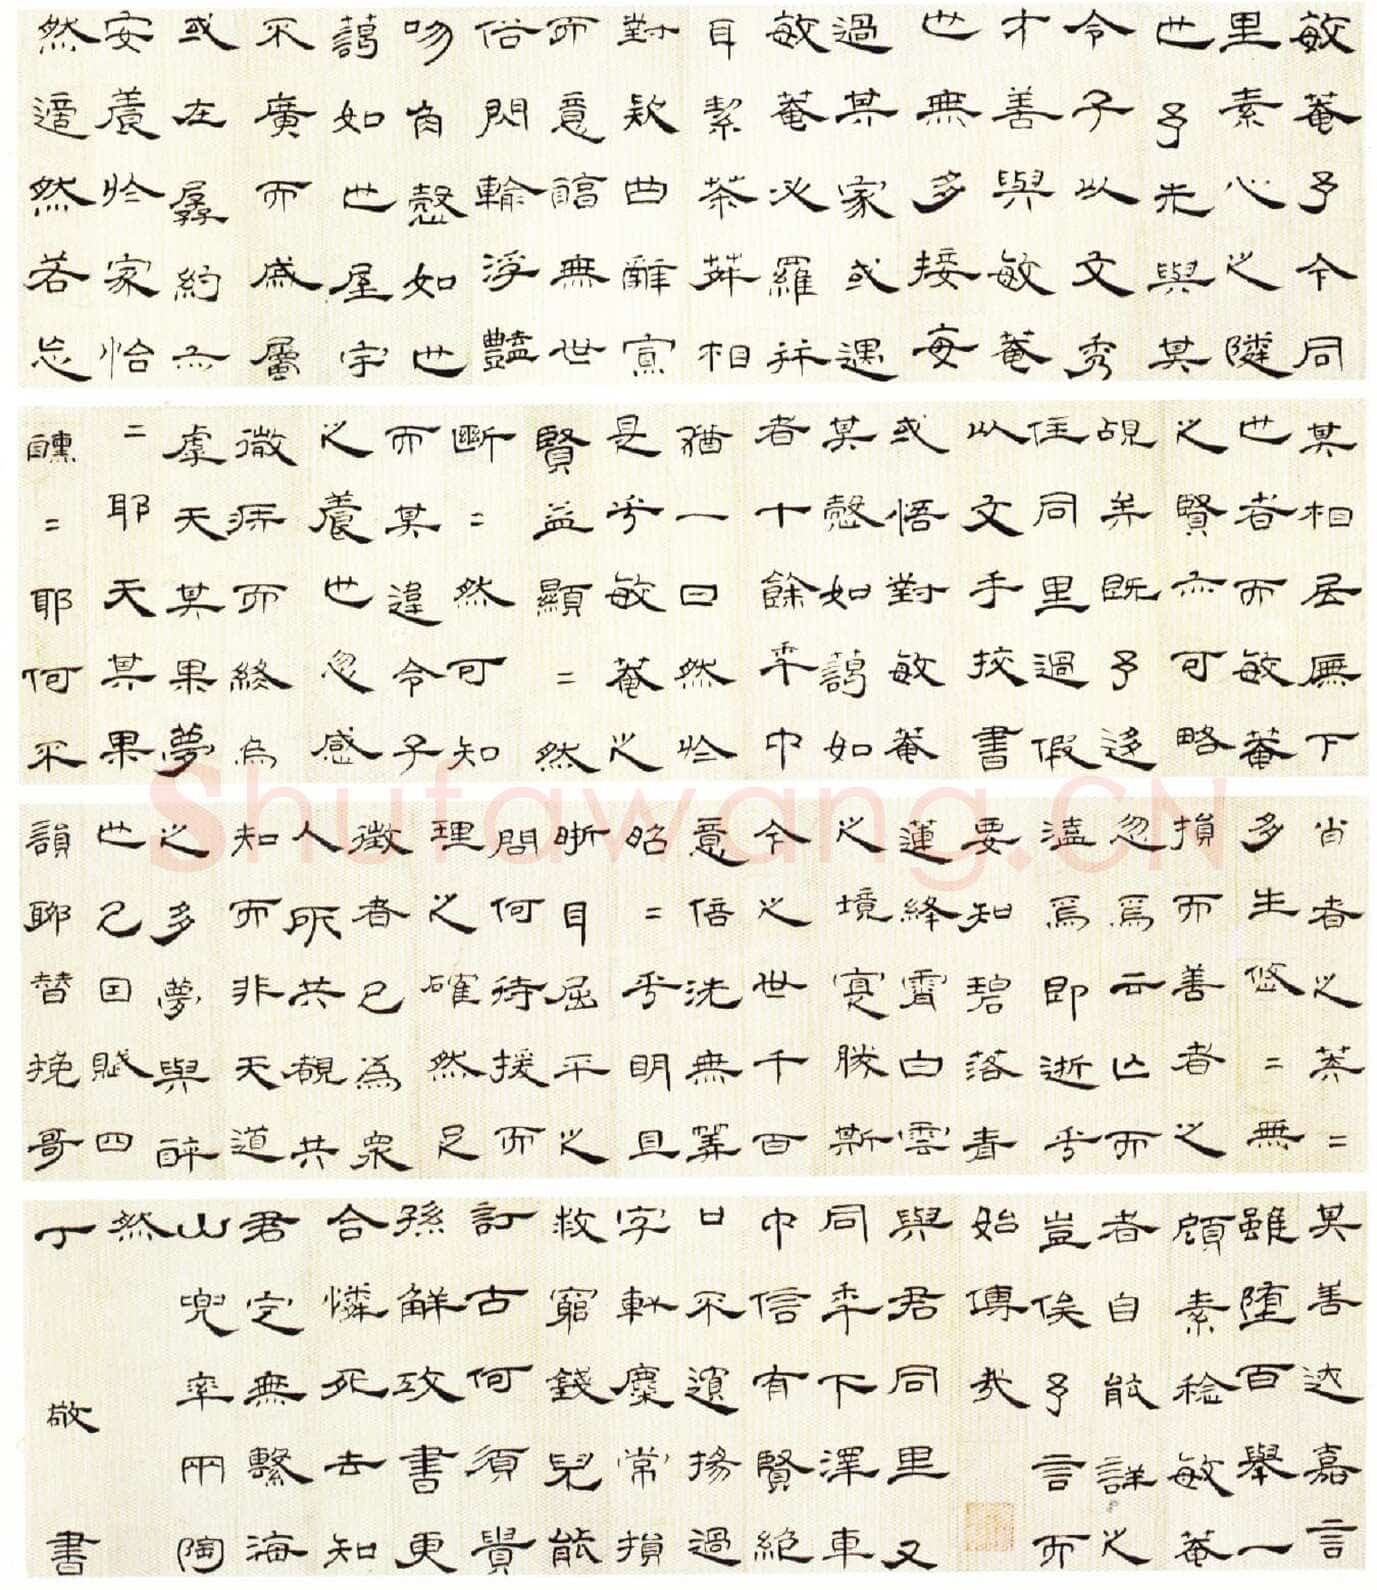 敏菴予今同
里素心之隣
也予先與其
令子以文秀
才善與敏菴
也無多接每
過其家或遇
敏菴必羅拜
耳絜茶荈相
對款曲辭寡
而意無世
俗閃輸浮豔
吻自愨如也
藹如也屋宇
不廣而戚屬
或在孱約亦
安養於家怡
然適然若忘
其相居廡下
也者而敏菴
之賢亦可略
覘矣既予迻
住同里過假
以文手挍書
或悟對敏菴
其愨如藹如
者十餘年中
猶一日然於
是乎敏菴之
賢益顯=然
斷=然可知
而其違令子
之養也忽感
微疾而終烏
虖天其果夢
=耶天其果
醺=耶何不
肖者之棻=
多生悠=無
損而善者之
忽焉云亡而
溘焉即逝乎
要知碧落青
蓮絳霄白雲
之境寔勝斯
今之世千百
意倍洗無筭
昭=乎明且
晣目屈平之
問何待援而
理之確然足
徵者已為衆
人所共覩共
知而非天道
之多夢與醉
世已因賦四
韻聊替挽哥
其善迖嘉言
雖墮百舉一
頋素稔敏菴
者自能詳之
豈俟予言而
始傳哉
與君同里又
同年下澤車
中信有賢絶
口不揚過
字軫麋常損
救窮錢兒能
訂古何須貴
孫解攻書更
合憐死去知
君定無繫海
山兜率兩陶
然
丁敬書
Shufawang.CN